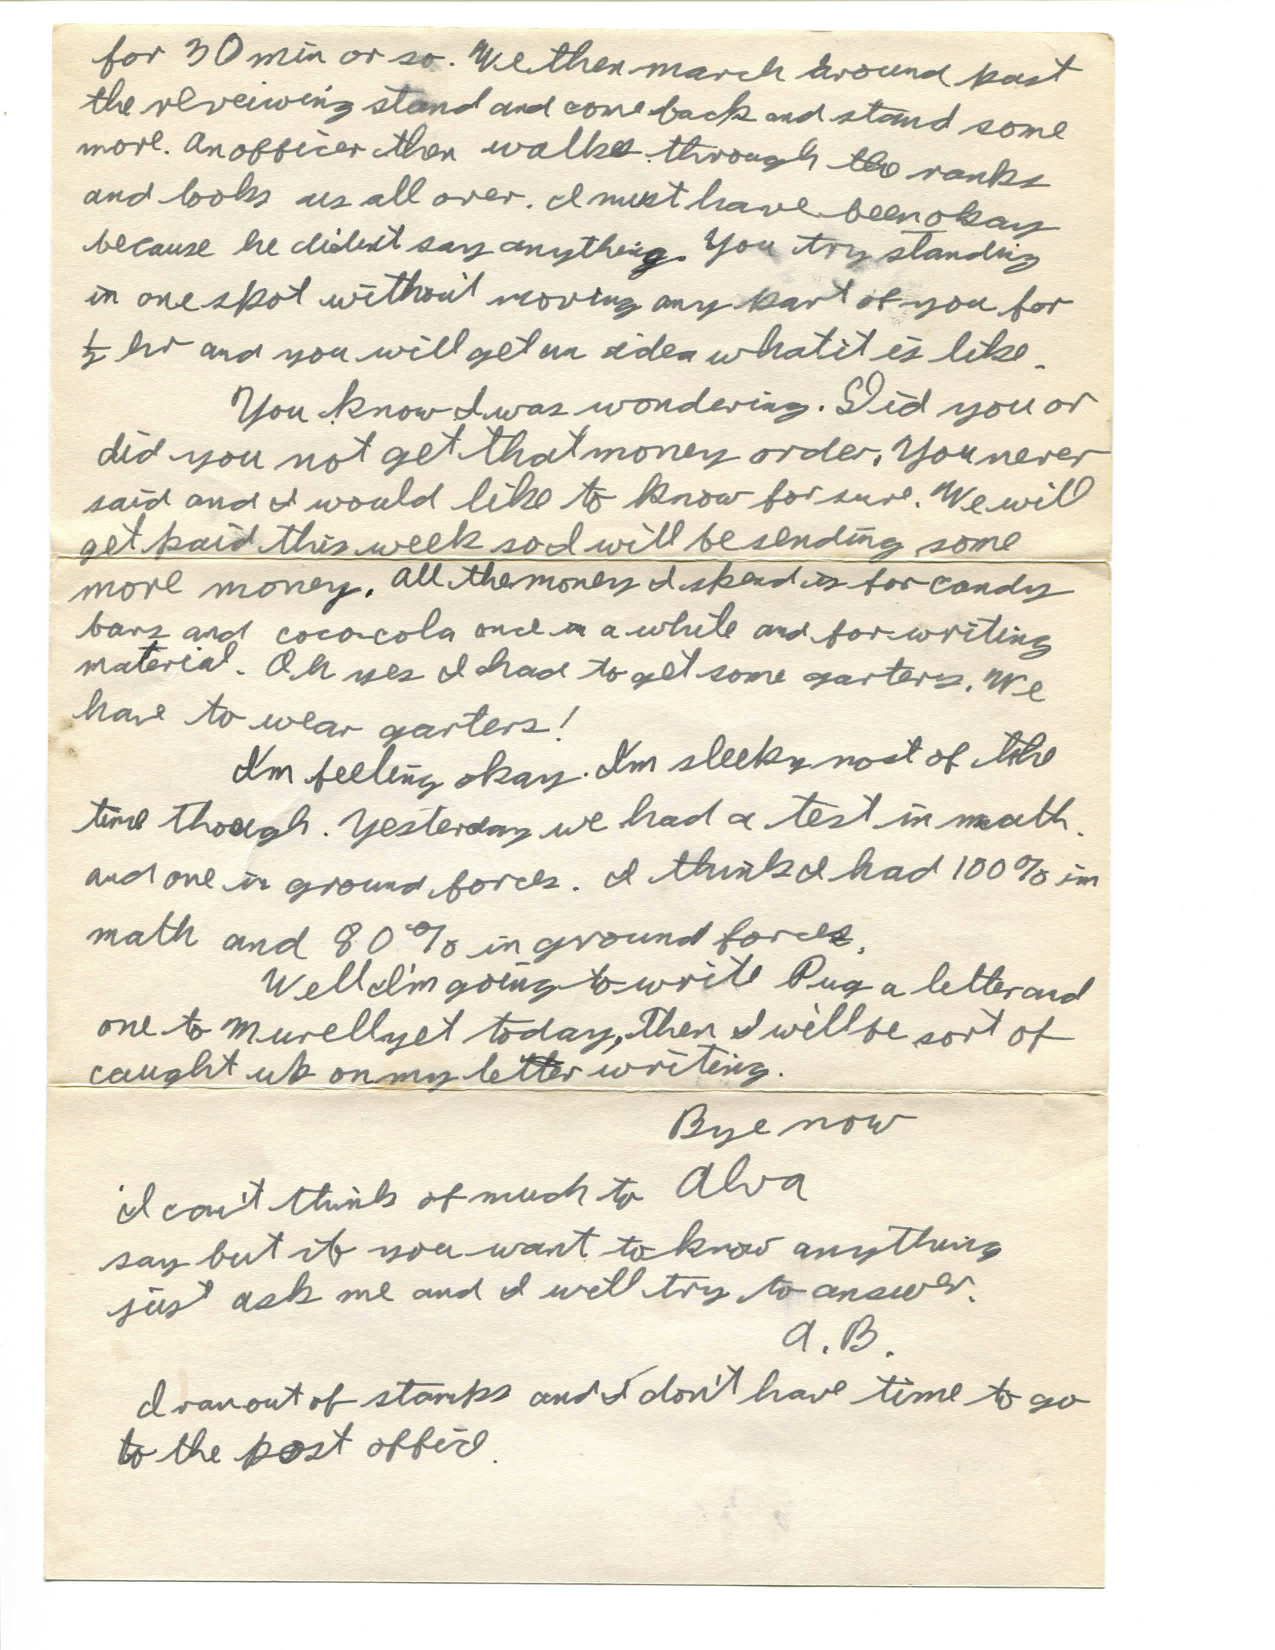 for 30 min or so. We then march around past
the reveiwing stand and come back and stand some
more. An officer then walks through the ranks
and looks us all over. I must have been okay
because he didn't say anything. You try standing
in one spot without moving any part of you for
½ hr and you will get an idea what it is like.
You know I was wondering. Did you or
did you not get that money order. You never
said and I would like to know for sure. We will
get paid this week so I will be sending some
more money. All the money I spend is for candy
bars and coco-cola once in a while and for writing
material. Oh yes I had to get some garters. We
have to wear garters!
I'm feeling okay. I'm sleepy most of the
time though. Yesterday we had a test in math
and one in ground forces. I think I had 100% in
math and 80% in ground forces.
Well I'm going to write Pug a letter and
one to Murell yet today, then I will be sort of
caught up on my letter writing.
Bye now
Alva
I can't think of much to
say but if you want to know anything
just ask me and I will try to answer.
A.B.
I ran out of stamps and I don't have time to go
to the post office.